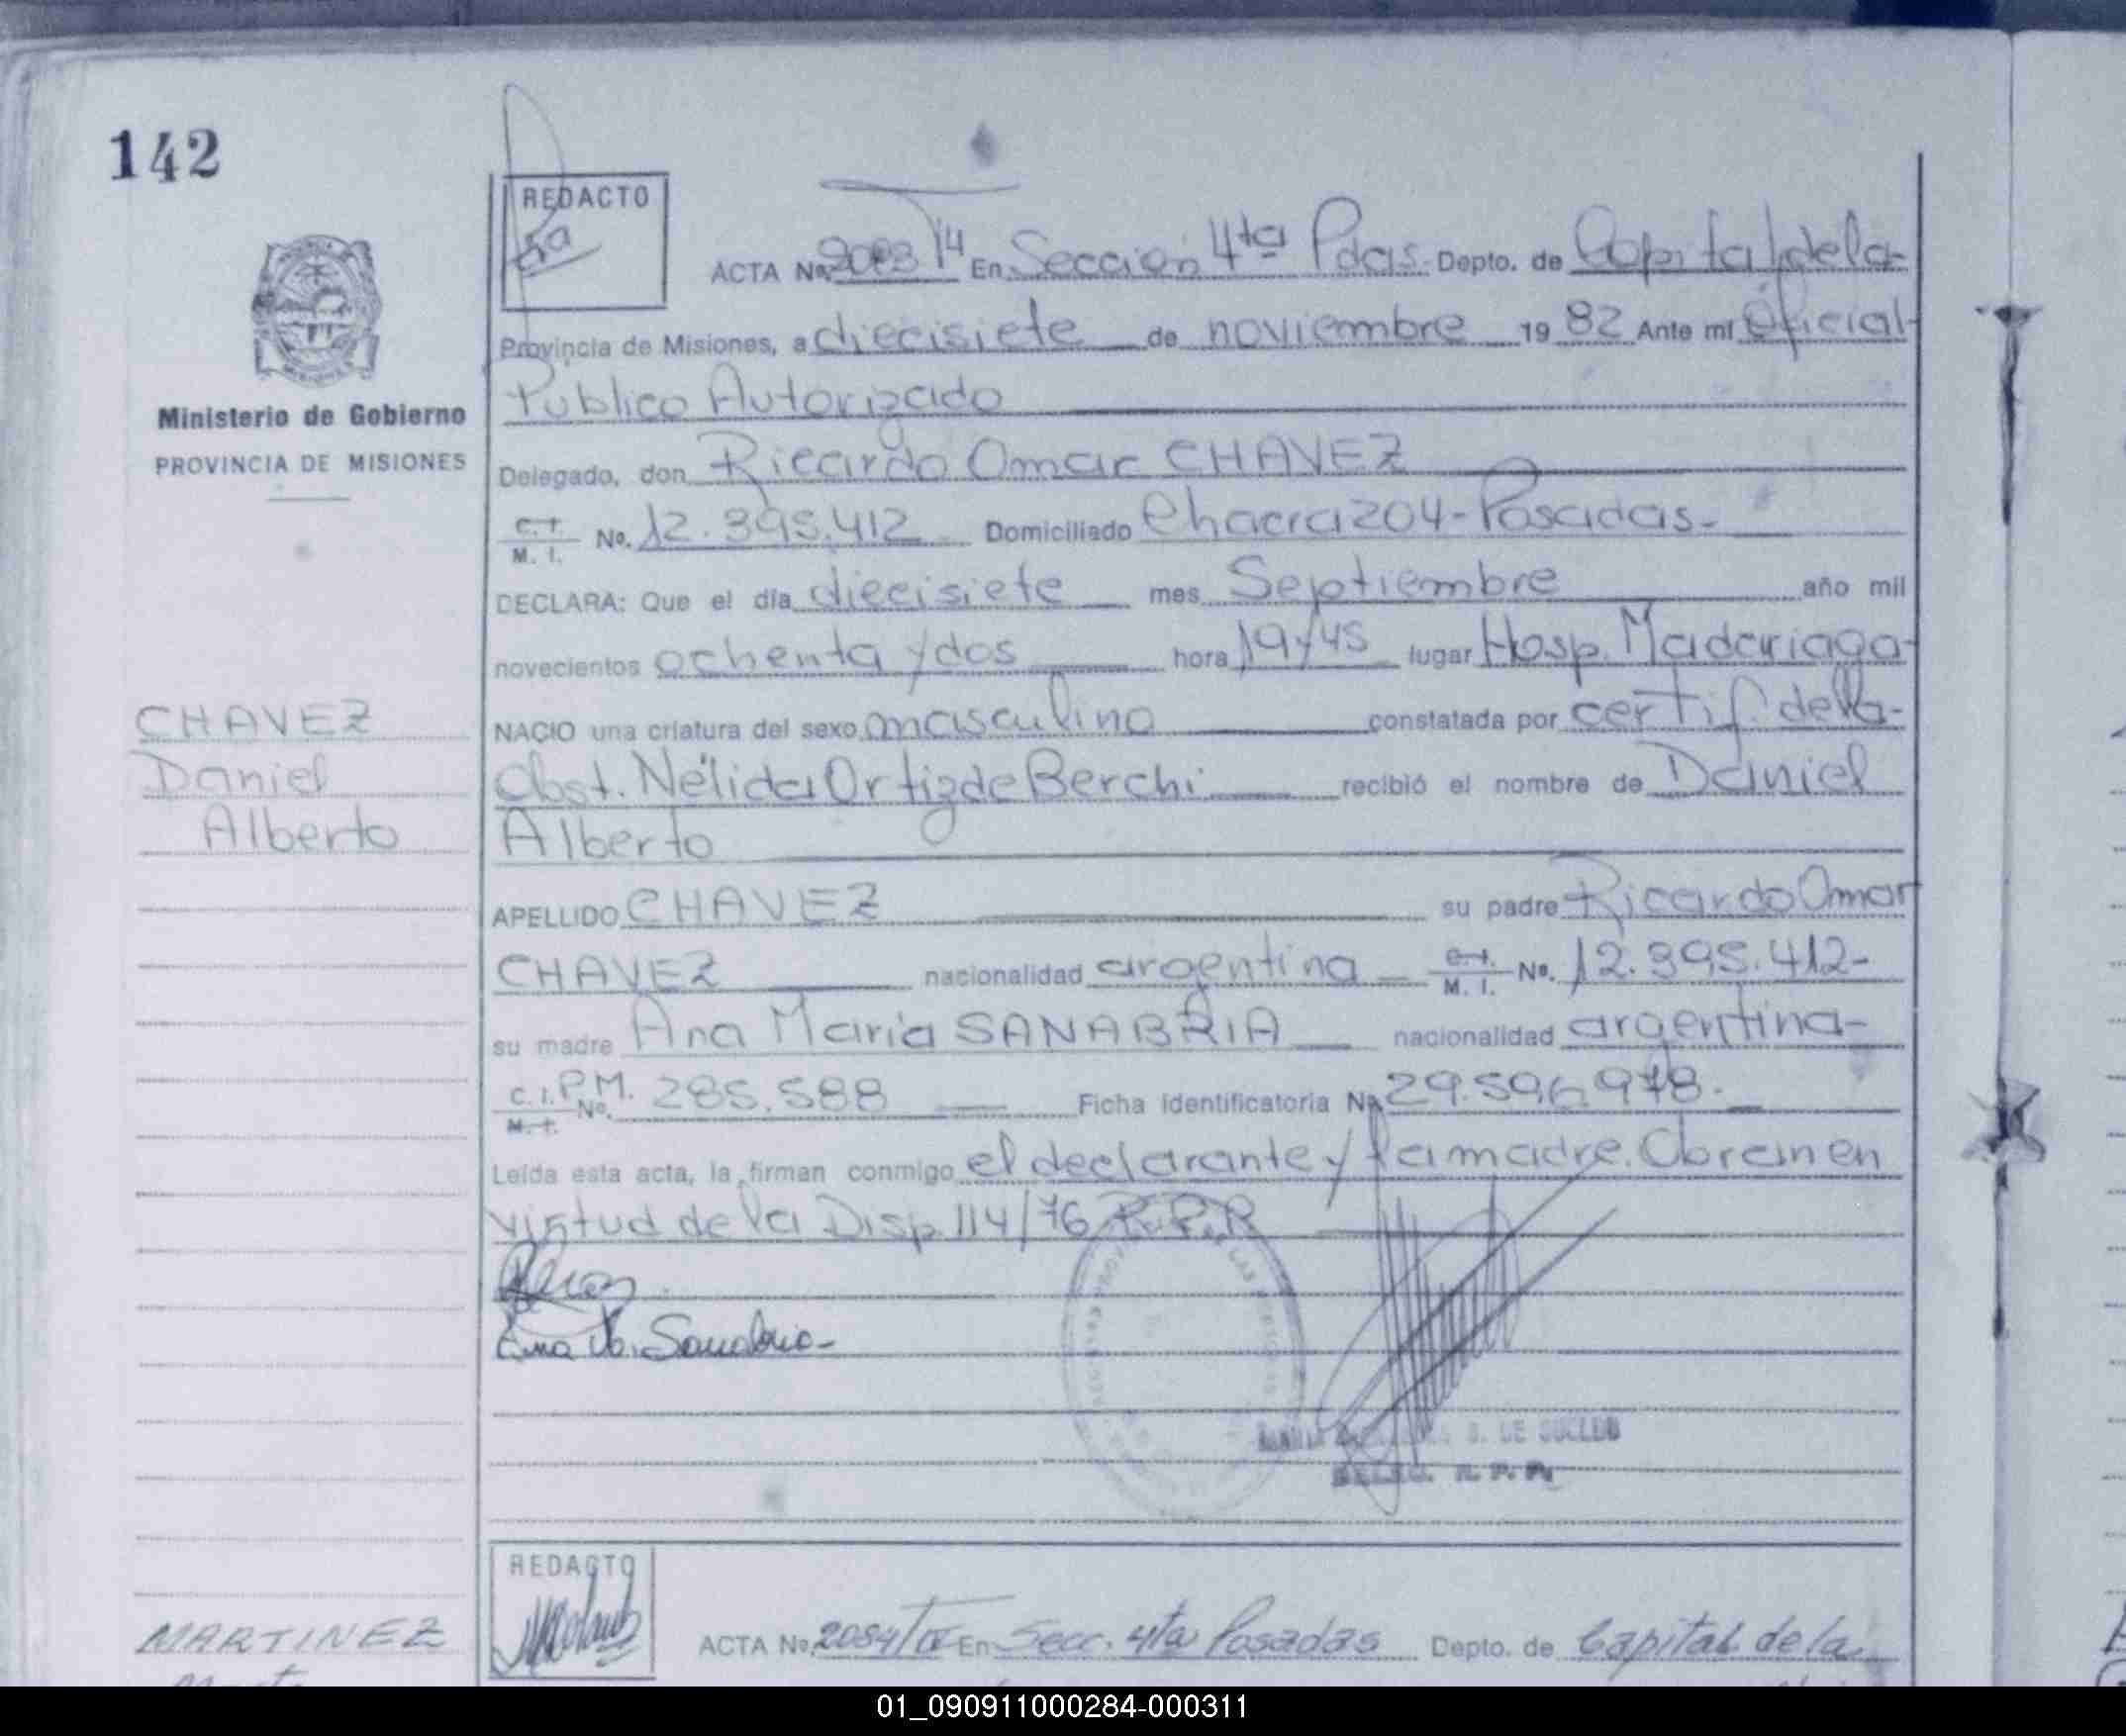 142
REDACTO
ACTA No. 2083 T4 En Sección 4ta Pdas- Depto. de Capital de la-
Provincia de Misiones, a diecisiete de noviembre 1982 Ante mí Oficial
Ministerio de Gobierno
PROVINCIA DE MISIONES
Público Autorizado
Delegado, don Ricardo Omar CHAVEZ
C. I. M. I. No. 12.395.412 Domiciliado Chacra 204-Posadas-
DECLARA: Que el día diecisiete mes Septiembre año mil
novecientos ochenta y dos hora 19 y 45 lugar Hosp. Madariaga-
NACIO una criatura del sexo masculino constatada por certif. de la-
Obst. Nélida Ortiz de Berchi recibió el nombre de Daniel
Alberto
CHAVEZ
Daniel
Alberto
APELLIDO CHAVEZ su padre Ricardo Omar
CHAVEZ nacionalidad argentina C. I. M. I. No. 12.395.412-
su madre Ana María SANABRIA nacionalidad argentina-
C. I. P.M. M. I. No. 285.588 Ficha identificatoria No. 29.596.978.
Leída esta acta, la firman conmigo el declarante y la madre. Obran en
virtud de la Disp. 114/76 R.P.P
Ana M. Sanabria-
S. DE SUCEDO
DELEG. R. P. P.
REDACTO
MARTINEZ
ACTA No. 2084/IV En Secc. 4ta Posadas Depto. de Capital de la
01_090911000284-000311